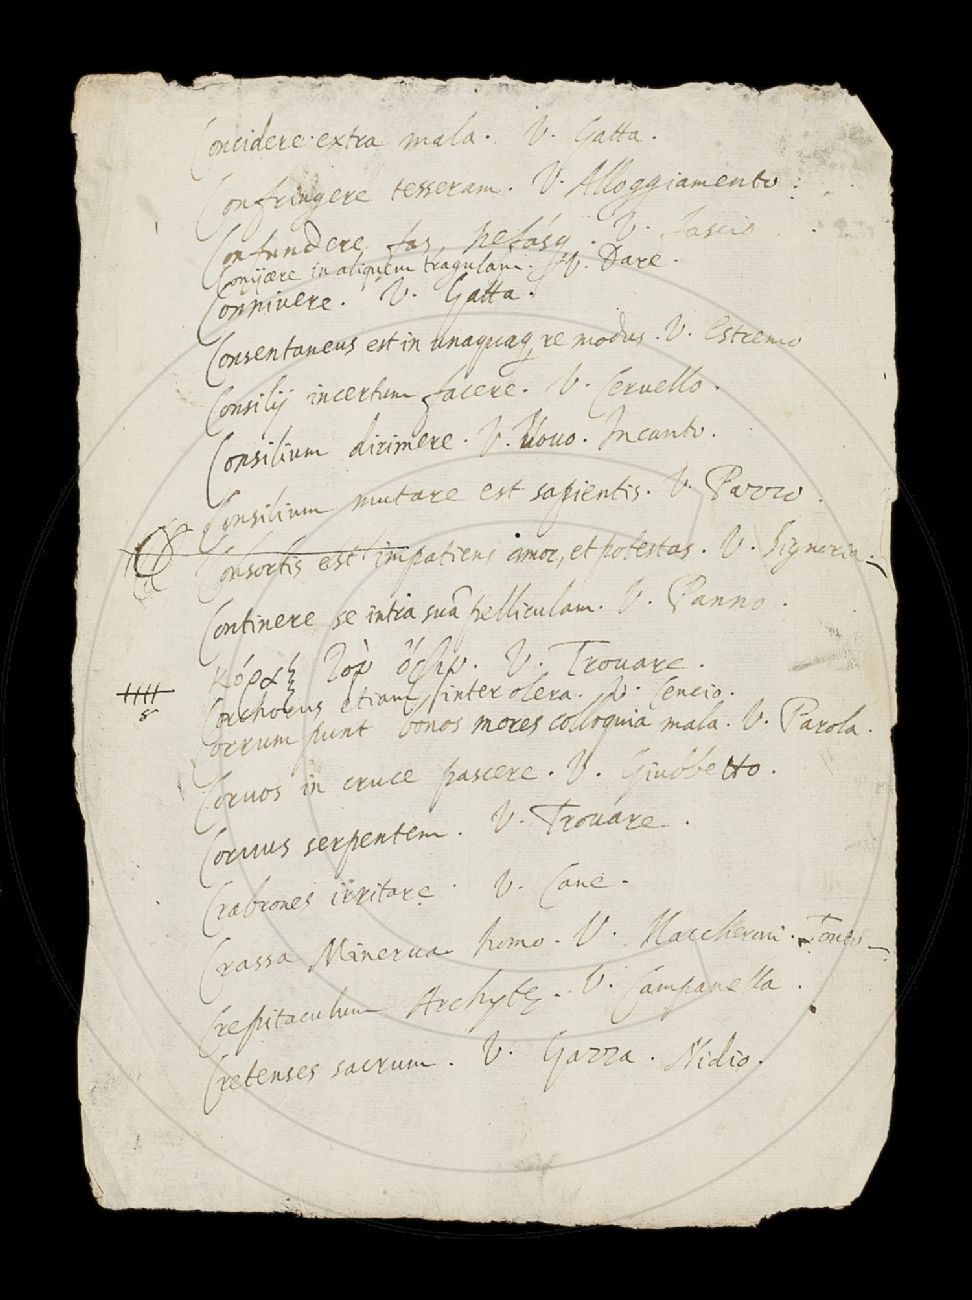 Concidere extra mala. V. Gatta.
Confringere tesseram. V. Alloggiamento.
Confundere fas, nefasq. V. fascio
Conijcere in aliquem tragulam. V. Dare.
Connivere. V. Gatta.
Consentaneus est in unaquaq re modus. V. Estremo
Consilij incertum facere. V. Ceruello.
Consilium dirimere. V. Uouo. Incanto.
Consilium mutare est sapientis. V. Pazzo.
Consortis est impatiens amor, et potestas. V. Signoria.
Continere se intra suā pelliculam. V. Panno.
V. Trouare.
Corchorus etiam inter olera. V. Cencio.
Corrumpunt bonos mores colloquia mala. V. Parola.
Coruos in cruce pascere. V. Giubbetto.
Coruus serpentem. V. Trouare.
Crabrones irritare. V. Cane.
Crassa Minerua homo. V. Maccheroni. Tondo
Crepitaculum Archytę. V. Campanella.
Cretenses sacrum. V. Gazza. Nidio.